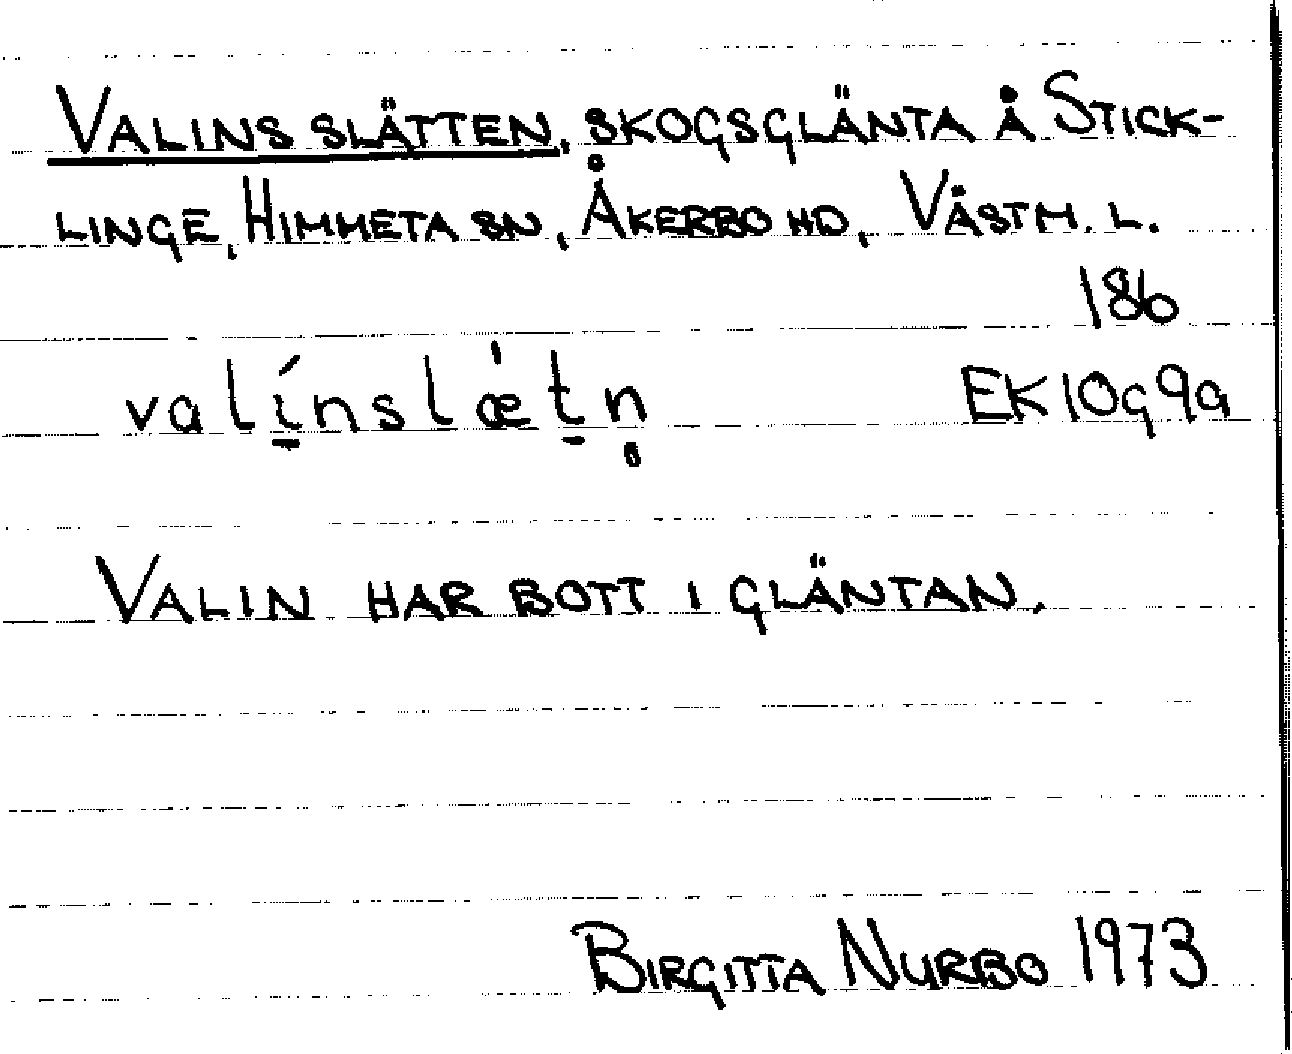 VALINS SLÄTTEN, SKOGSGLÄNTA Å STICK-
LINGE, HIMMETA SN, ÅKERBO HD, VÄSTM. L.
186
valí̱nslæ̍ṯn̥
EK10g9a
VALIN HAR BOTT I GLÄNTAN.
BIRGITTA NURBO 1973